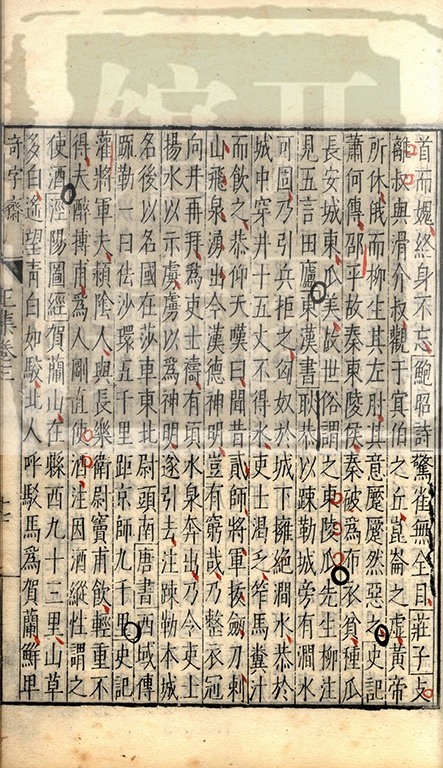 首而媿終身不忘鮑昭詩驚雀無全目莊子支
離叔與滑介叔觀于冥伯之丘崑崙之虛黃帝
所休俄而柳生其左肘其意蹷蹷然惡之史記
蕭何傳邵平故秦東陵侯秦破爲布衣貧種瓜
長安城東瓜美故世俗謂之東陵瓜先生柳注
見五言田廬東漢書耿恭以踈勒城旁有澗水
可固乃引兵拒之匈奴於城下擁絕澗水恭於
城中穿井十五丈不得水吏士渴乏笮馬糞汁
而飲之恭仰天嘆曰聞昔貳師將軍拔劒刀刺
山飛泉湧出今漢德神明豈有窮哉乃整衣冠
向井再拜爲吏士禱有頃水泉奔出乃令吏士
揚水以示虜虜以爲神明遂引去注踈勒本城
名後以名國在莎車東北尉頭南唐書西域傳
踈勒一曰佉沙環五千里距京師九千里史記
灌將軍夫潁陰人與長樂衛尉竇甫飲輕重不
得夫醉搏甫爲人剛直使酒注因酒縱性謂之
使酒涇陽圖經賀蘭山在縣西九十三里山草
多白遙望青白如駮北人呼駮馬爲賀蘭鮮卑
奇字齋